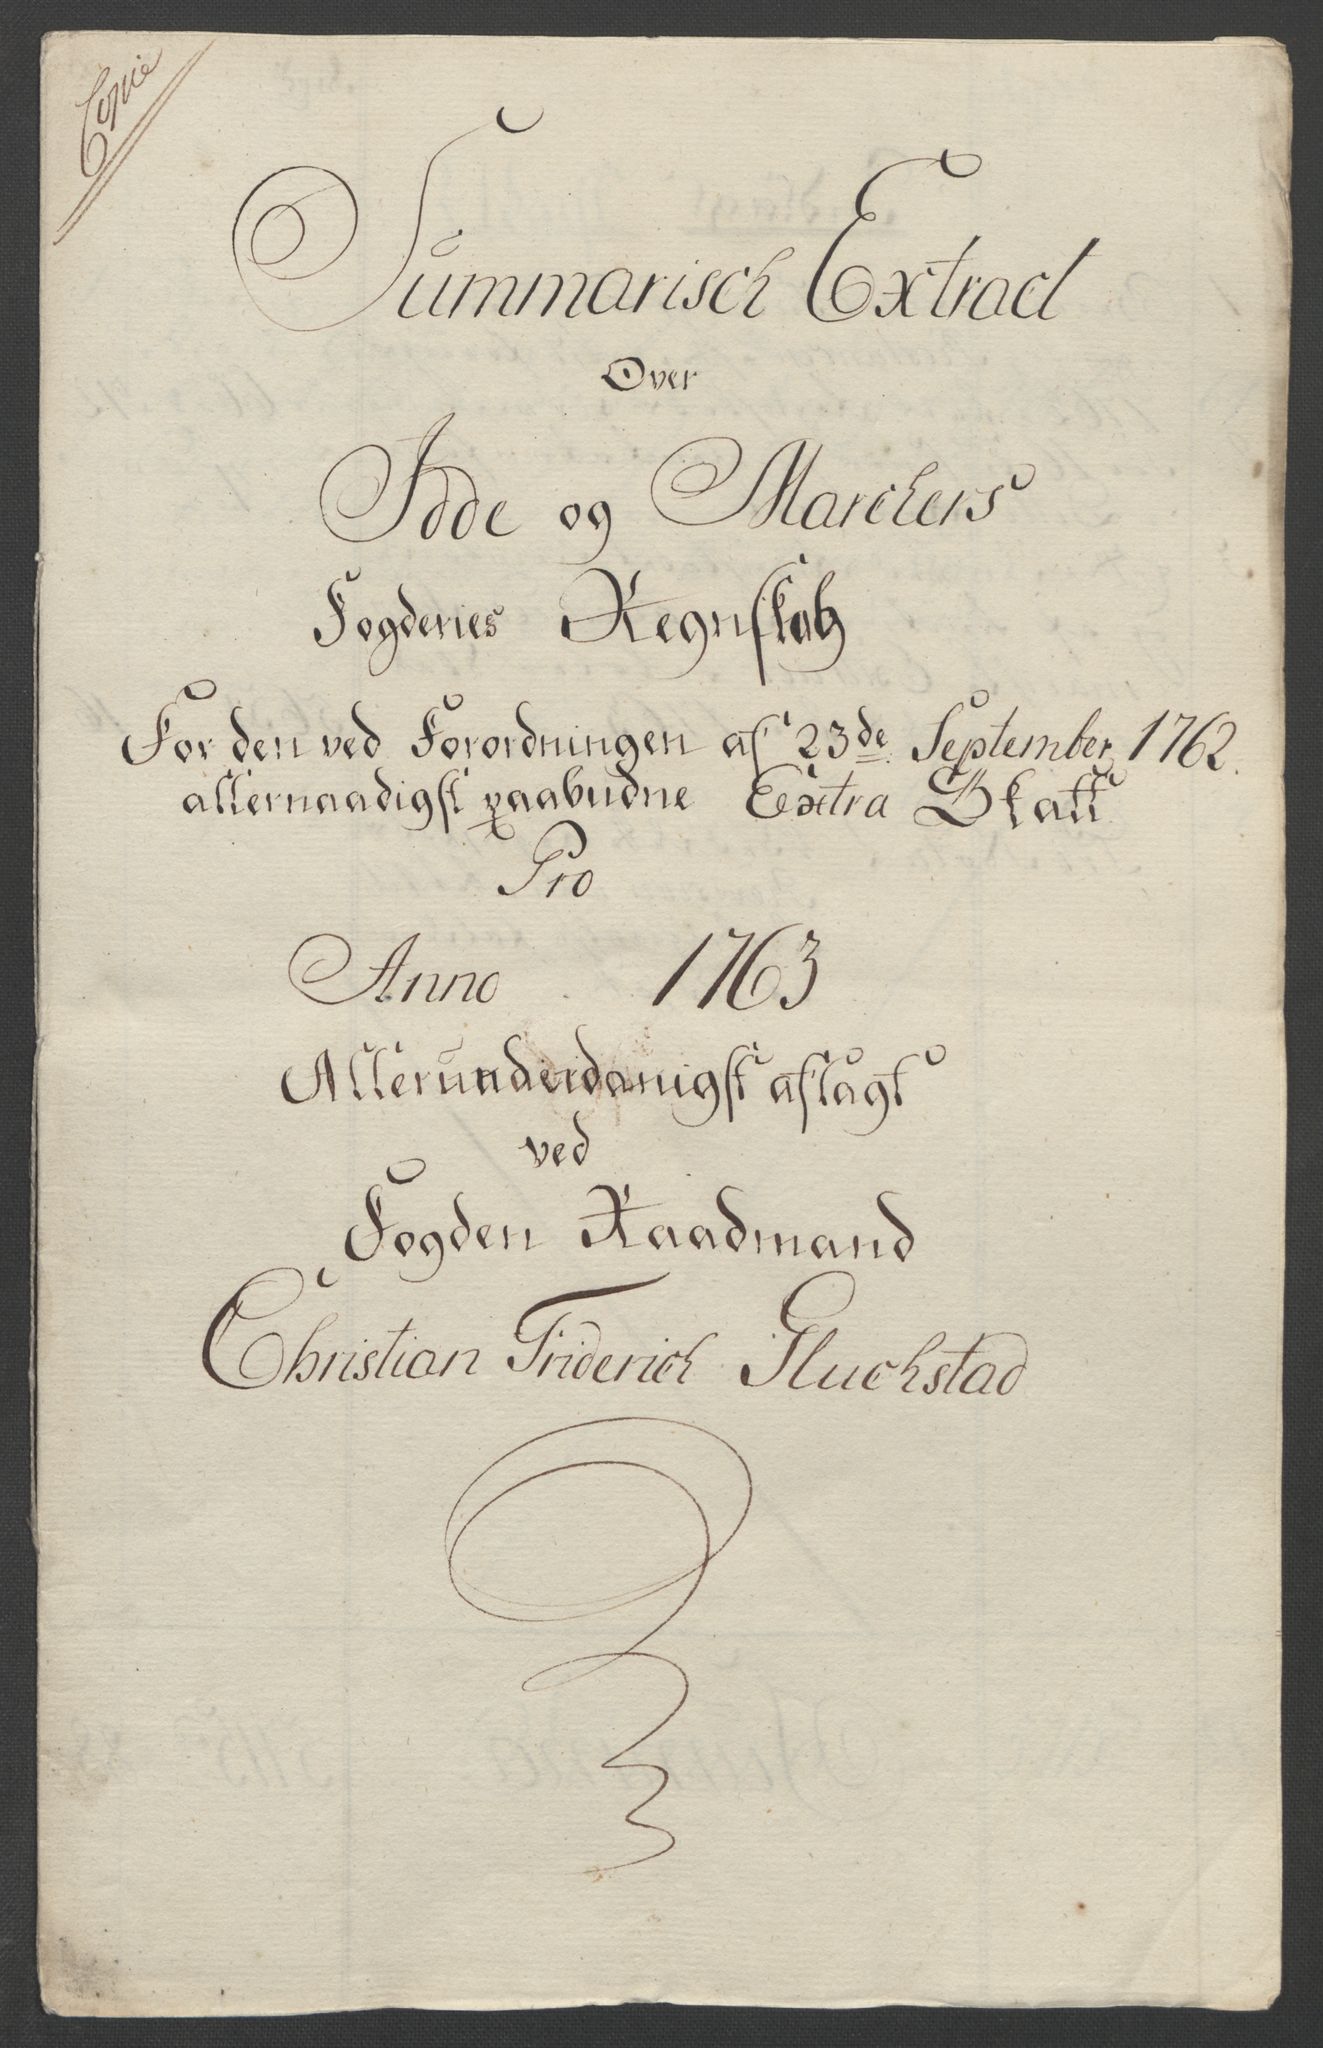 Copie
Summarisch Extract
Over
Idde og Marchers
Fogderies Regnskab
For den ved Forordningen af 23de September 1762.
allernaadigst paabudne Extra Skatt
Pro
Anno 1763
Allerunderdanigst aflagt
ved
Fogden Raadmand
Christian Friderich Gluchstad